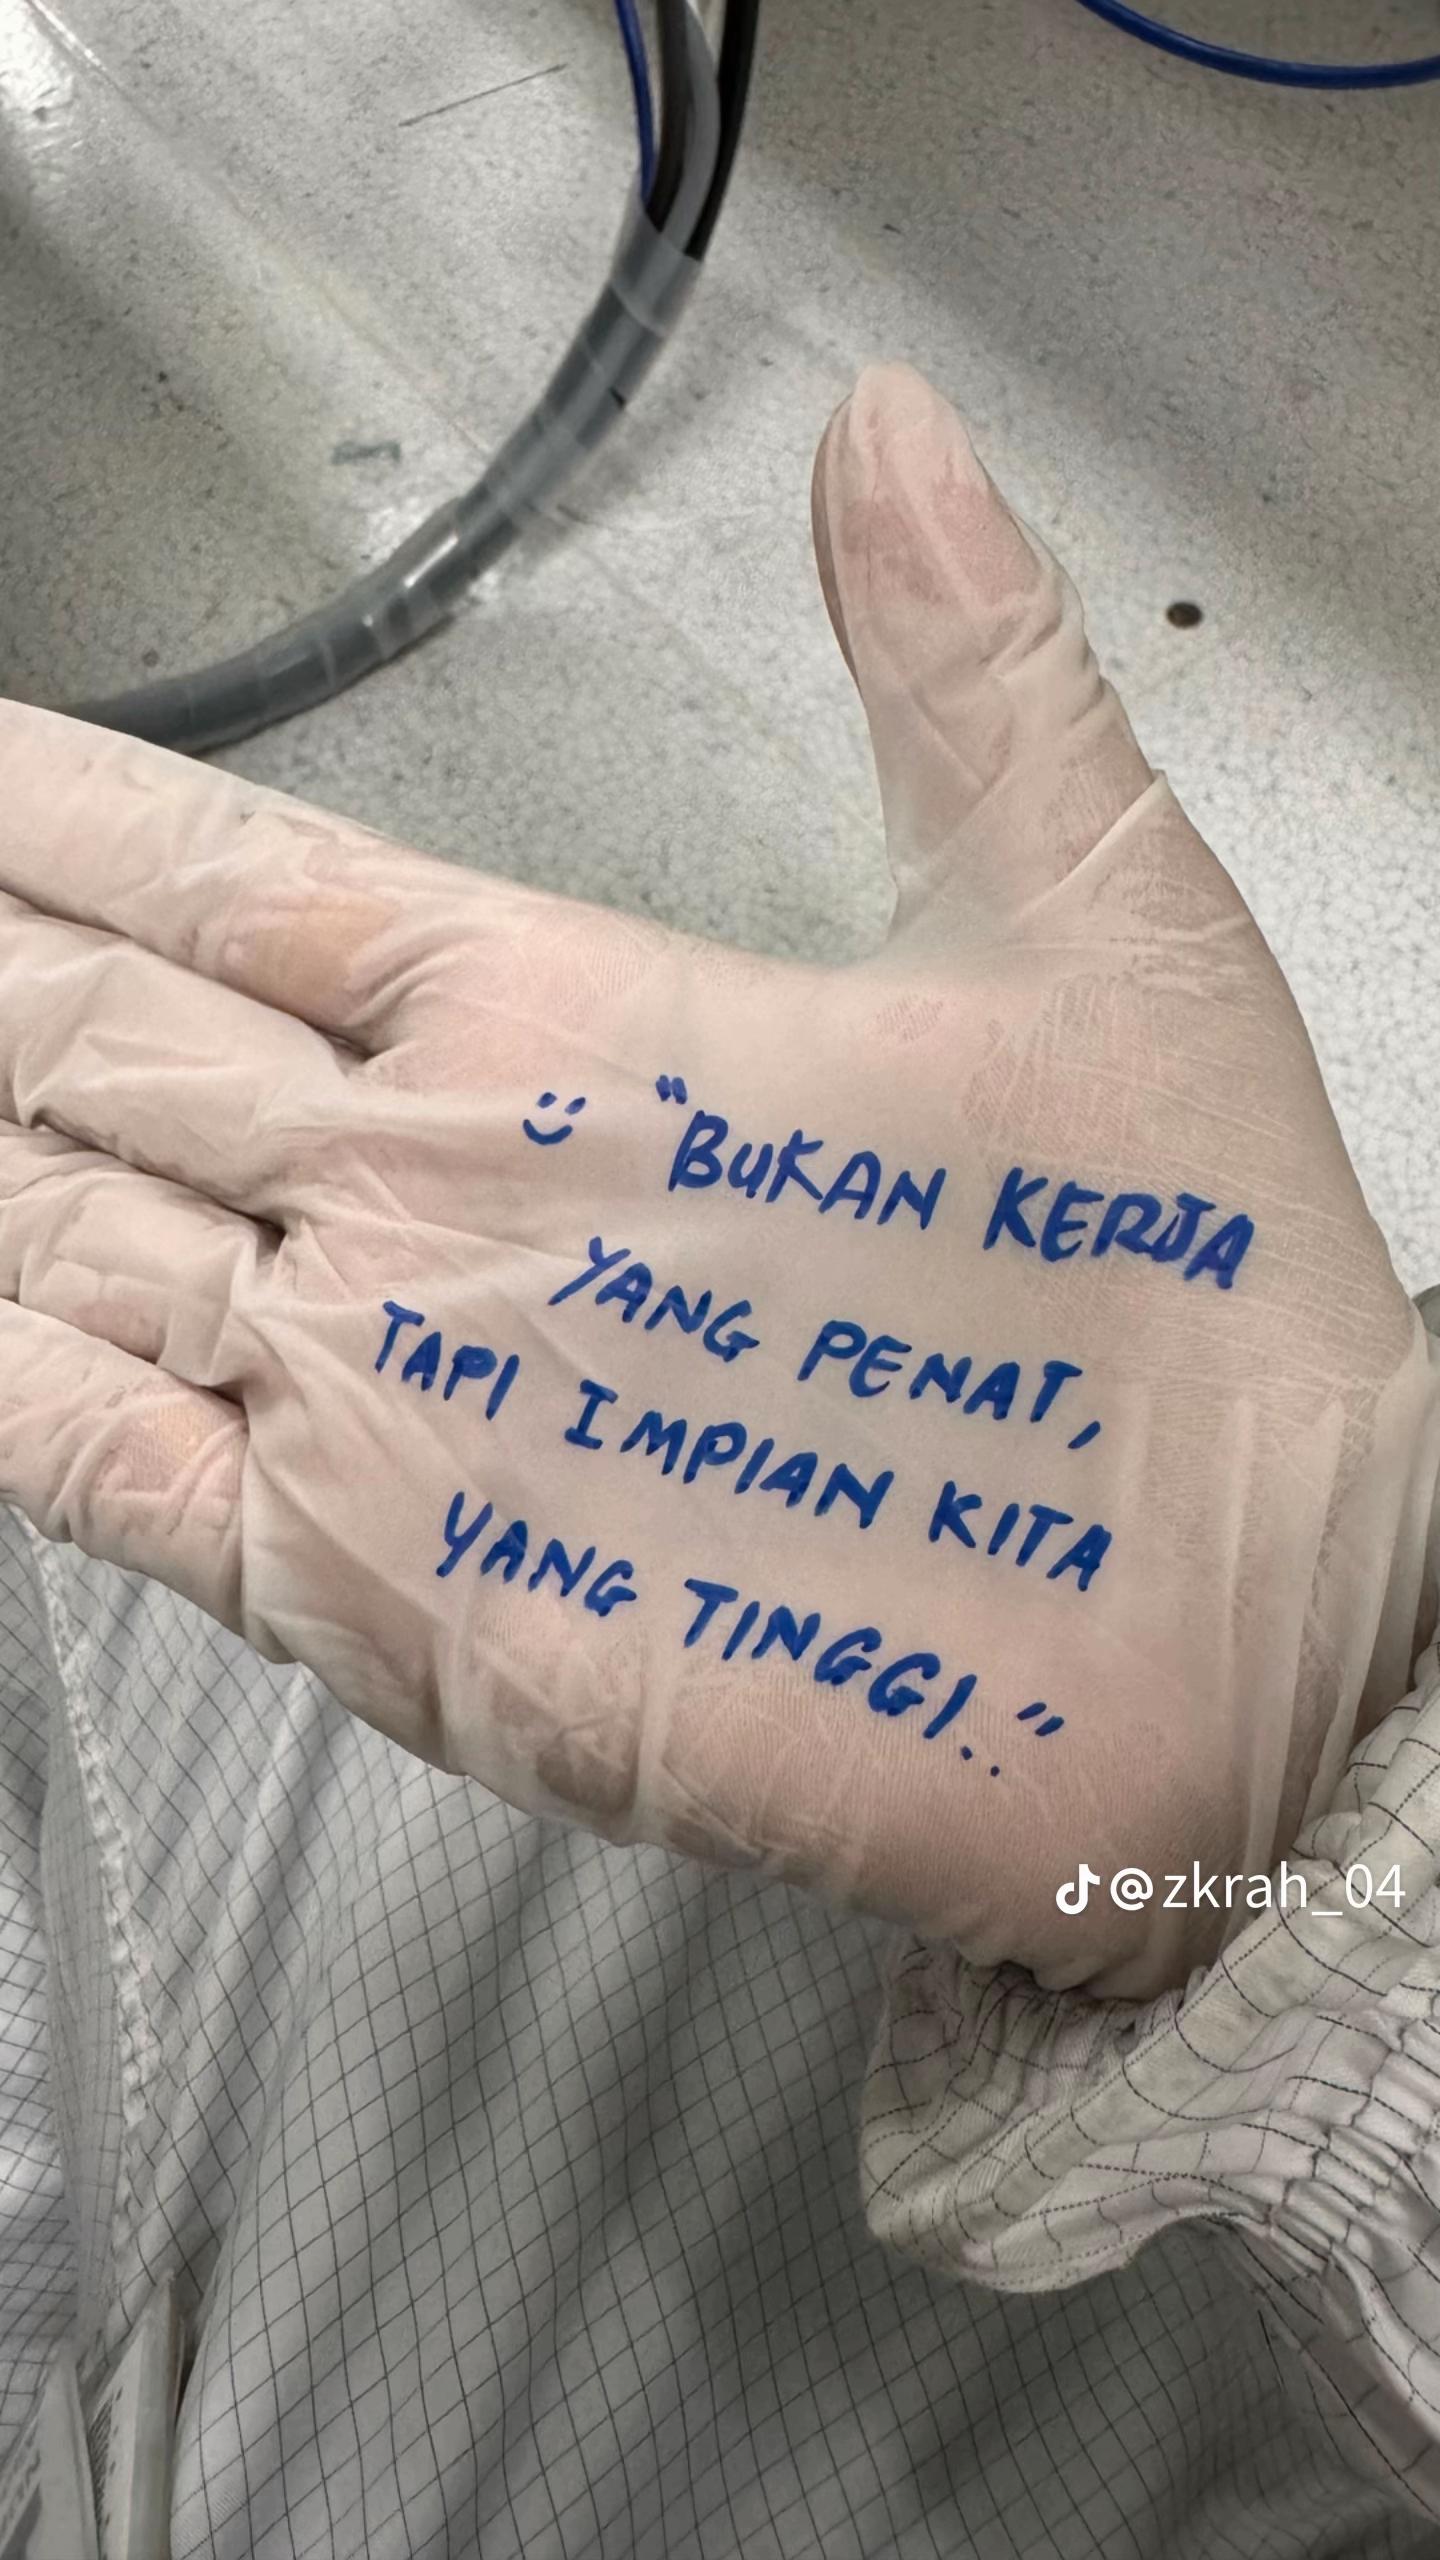 :) "BUKAN KERJA
YANG PENAT,
TAPI IMPIAN KITA
YANG TINGGI.."
@zkrah_04